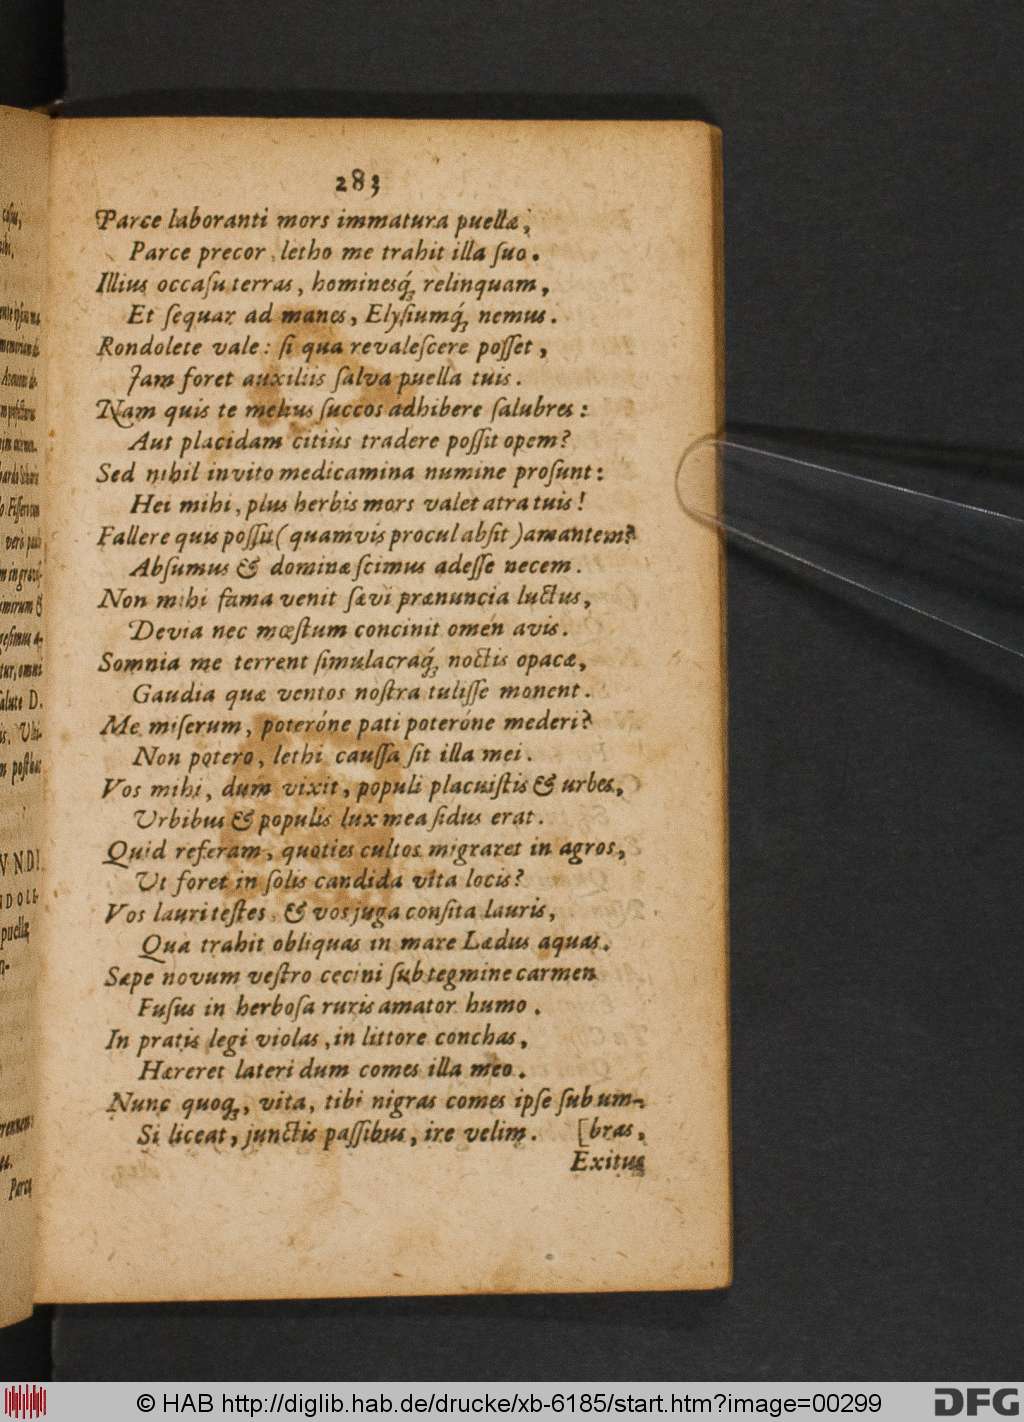 283
Parce laboranti mors immatura puellæ,
Parce precor, letho me trahit illa suo.
Illius occasu terras, hominesq́; relinquam,
Et sequar ad manes, Elysiumq́; nemus.
Rondolete vale: si qua revalescere posset,
Jam foret auxiliis salva puella tuis.
Nam quis te melius succos adhibere salubres:
Aut placidam citiùs tradere possit opem?
Sed nihil invito medicamina numine prosunt:
Hei mihi, plus herbis mors valet atra tuis!
Fallere quis possit (quamvis procul absit) amantem?
Absumus & dominæ scimus adesse necem.
Non mihi fama venit sævi prænuncia luctus,
Devia nec mœstum concinit omen avis.
Somnia me terrent simulacraq́; noctis opacæ,
Gaudia quæ ventos nostra tulisse monent.
Me miserum, poteróne pati poteróne mederi?
Non potero, lethi caussa sit illa mei.
Vos mihi, dum vixit, populi placuistis & urbes,
Urbibus & populis lux mea sidus erat.
Quid referam, quoties cultos migraret in agros,
Ut foret in solis candida vita locis?
Vos lauri testes, & vos juga consita lauris,
Qua trahit obliquas in mare Lædus aquas.
Sæpe novum vestro cecini sub tegmine carmen
Fusus in herbosa ruris amator humo.
In pratis legi violas, in littore conchas,
Hæreret lateri dum comes illa meo.
Nunc quoq;, vita, tibi nigras comes ipse sub um-
Si liceat, junctis passibus, ire velim. [bras,
Exitus
© HAB http://diglib.hab.de/drucke/xb-6185/start.htm?image=00299
DFG